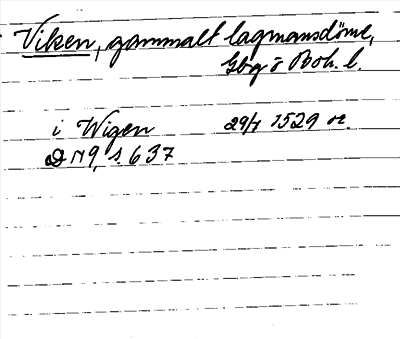 Viken, gammalt lagmansdöme,
Gbg o Boh. l.
i Wigen 29/1 1529 or.
DN 9, s. 637